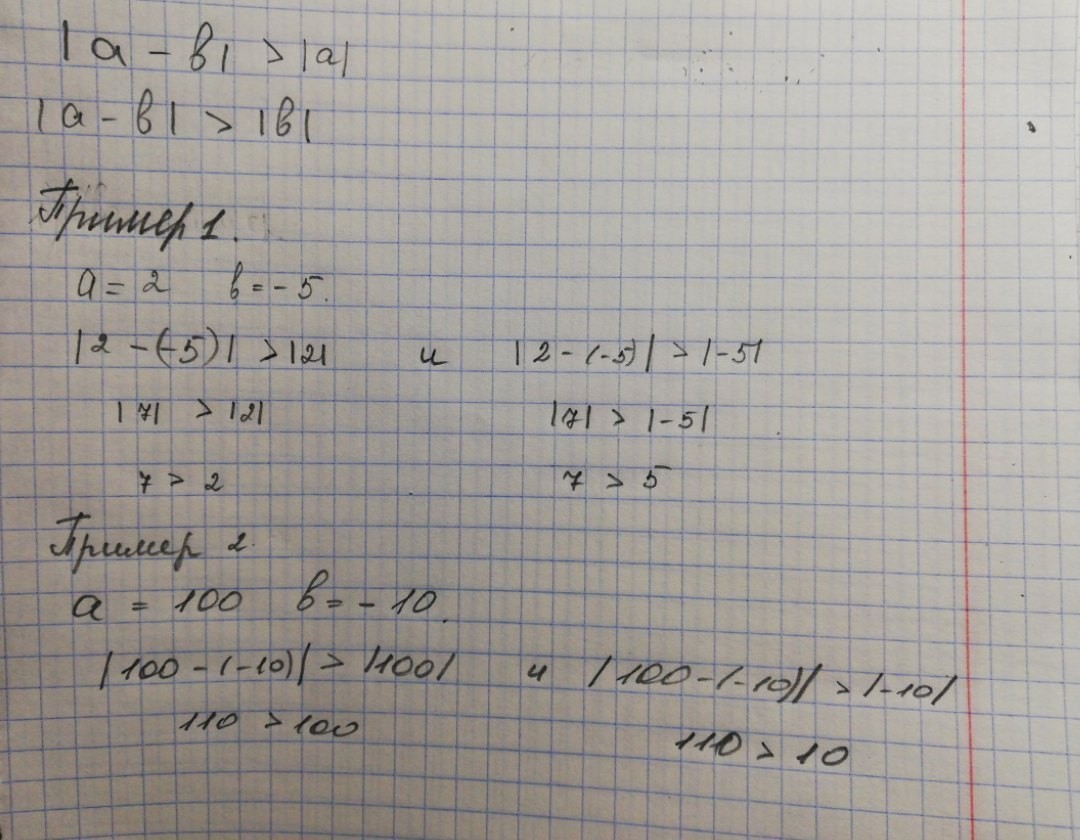 |а - в| > |а|
|а - в| > |в|
Пример 1.
а = 2 в = - 5.
|2 - (-5)| > |2| и |2 - (-5)| > |-5|
|7| > |2| |7| > |-5|
7 > 2 7 > 5
Пример 2.
а = 100 в = - 10.
|100 - (-10)| > |100| и |100 - (-10)| > |-10|
110 > 100 110 > 10